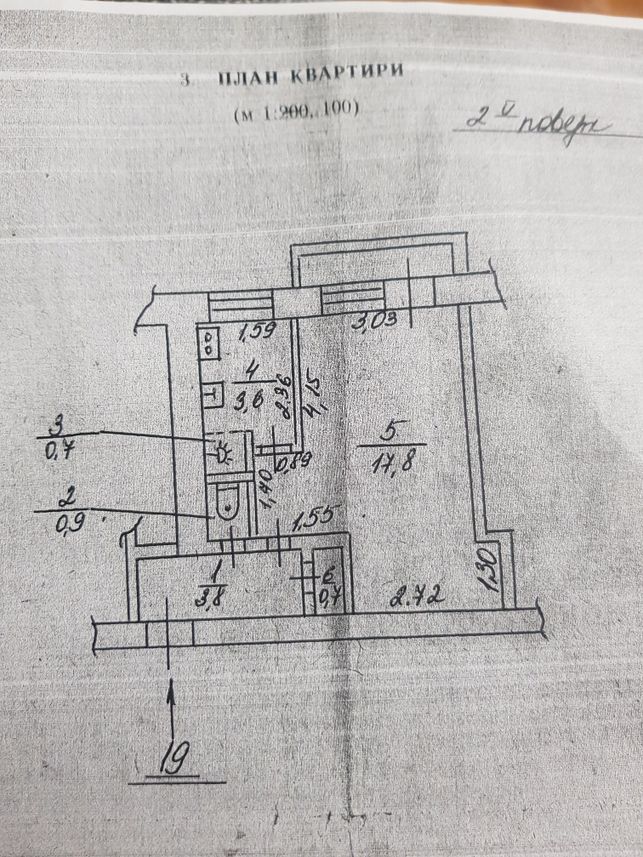 3 ПЛАН КВАРТИРИ
(м 1:200, 100)
2й поверх
1,59
3,03
4
3,6
2.36
4,15
3
0,7
0,89
5
17,8
2
0,9
1,40
1,55
1
3,8
6
0,7
2.72
1.30
19